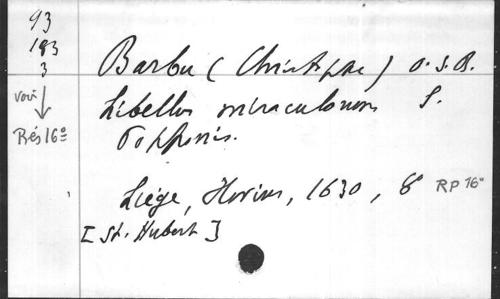 93
183
3
voir
Rés 16°
Barbu (Christophe) O.S.B.
Libellus miraculorum S.
Popponis.
Liège, Hovius, 1630, 8° RP 16°
[St. Hubert]